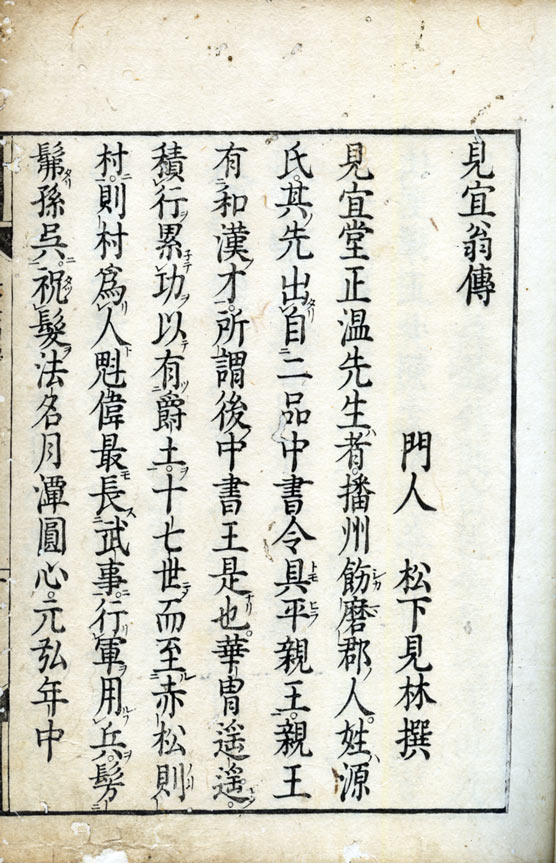 見宜翁傳
門人 松下見林撰
見宜堂正温先生者。播州飭磨郡人。姓源
氏。其先出自二品中書令具平親王。親王
有和漢才。所謂後中書王是也。華胄遥遥。
積行累功以有爵土。十七世而至赤松則
村。則村爲人魁偉最長武事。行軍用兵。髣
髴孫吳。祝髮法名月潭圓心。元弘年中